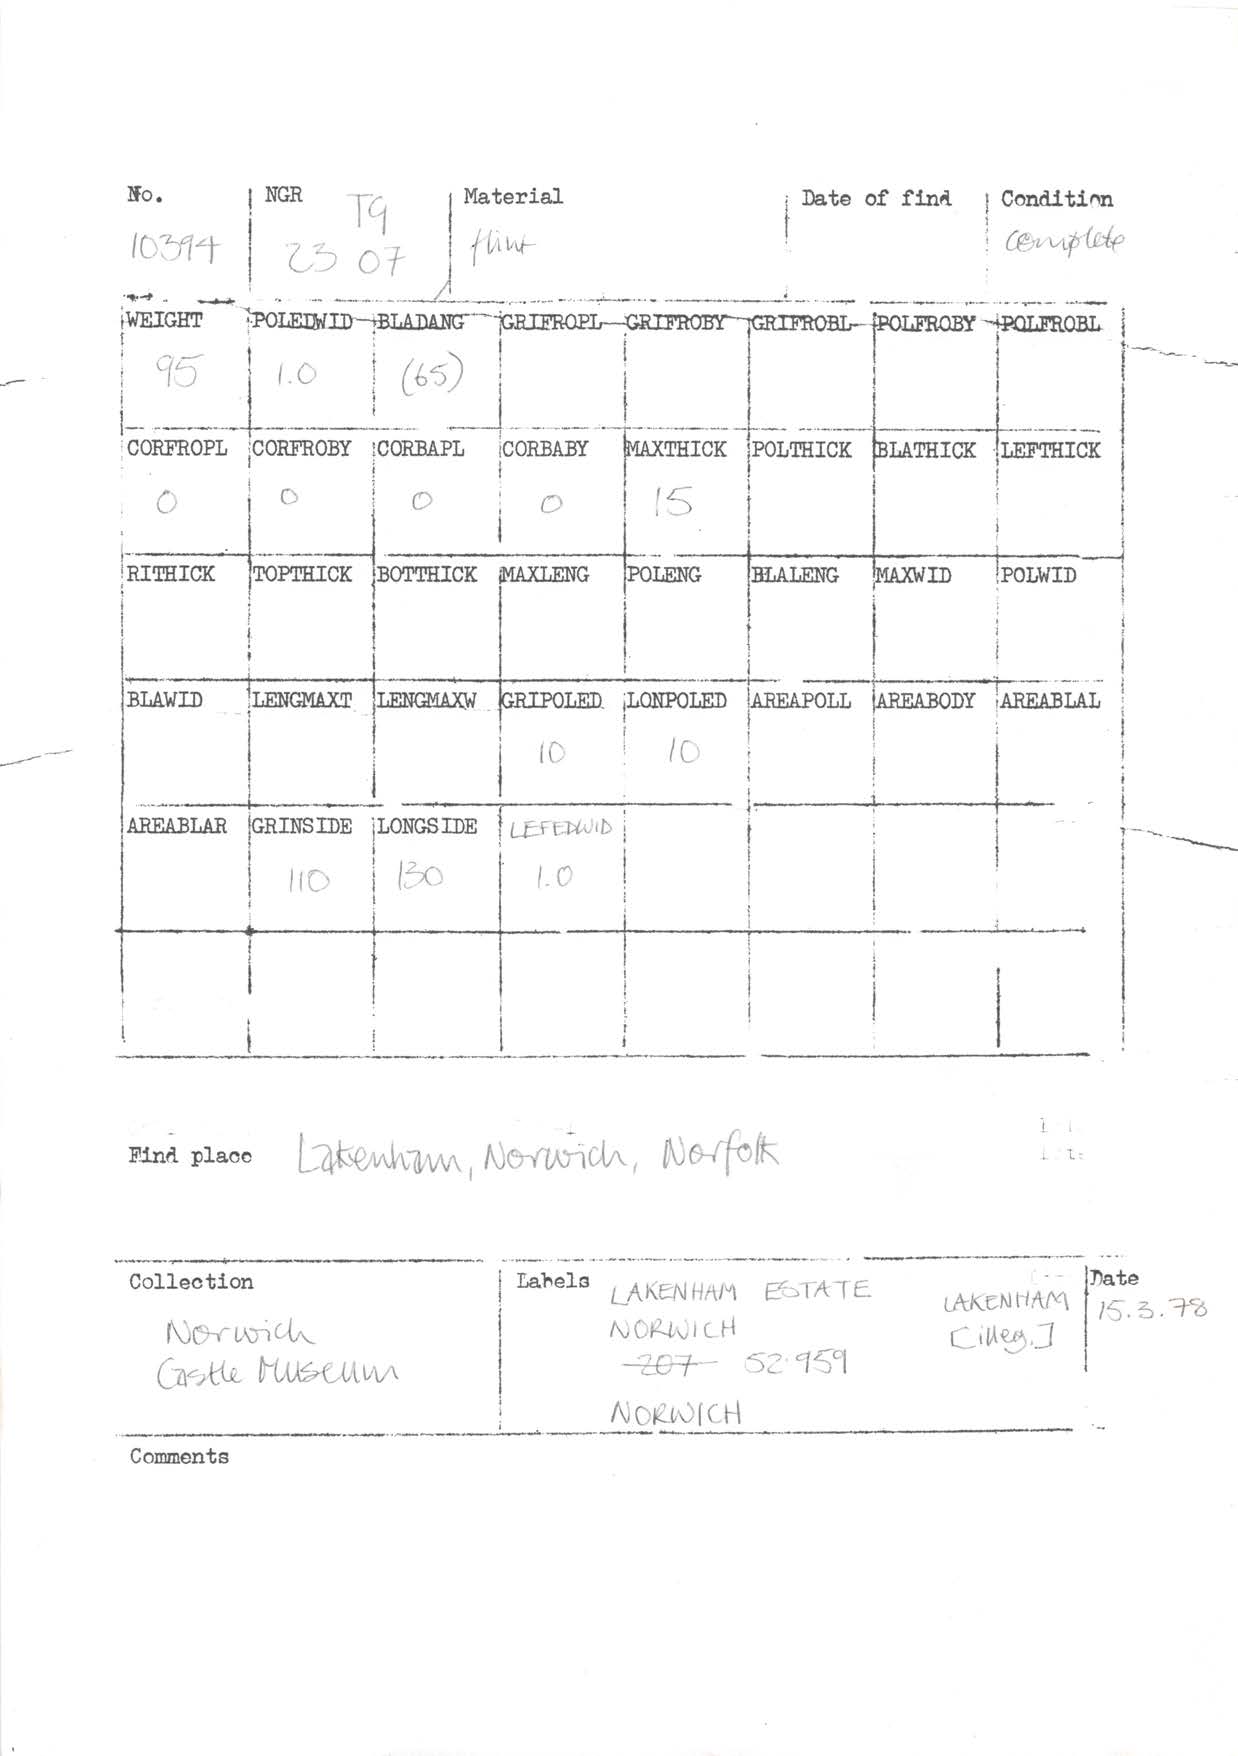 No. NGR Material Date of find Condition
TG
10394 23 07 flint complete
WEIGHT POLEDWID BLADANG GRIFROPL GRIFROBY GRIFROBL POLFROBY POLFROBL
95 1.0 (65)
CORFROPL CORFROBY CORBAPL CORBABY MAXTHICK POLTHICK BLATHICK LEFTHICK
0 0 0 0 15
RITHICK TOPTHICK BOTTHICK MAXLENG POLENG BLALENG MAXWID POLWID
BLAWID LENGMAXT LENGMAXW GRIPOLED LONPOLED AREAPOLL AREABODY AREABLAL
10 10
AREABLAR GRINSIDE LONGSIDE LEFEDWID
110 130 1.0
Find place Lakenham, Norwich, Norfolk
Collection Labels Date
LAKENHAM ESTATE LAKENHAM 15.3.78
Norwich NORWICH [illeg.]
Castle Museum 207 52.959
NORWICH
Comments